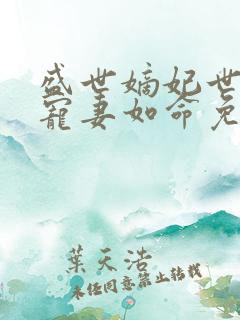 盛世嫡妃世
寵妻如命免
葉天浩
未经同意禁止转载